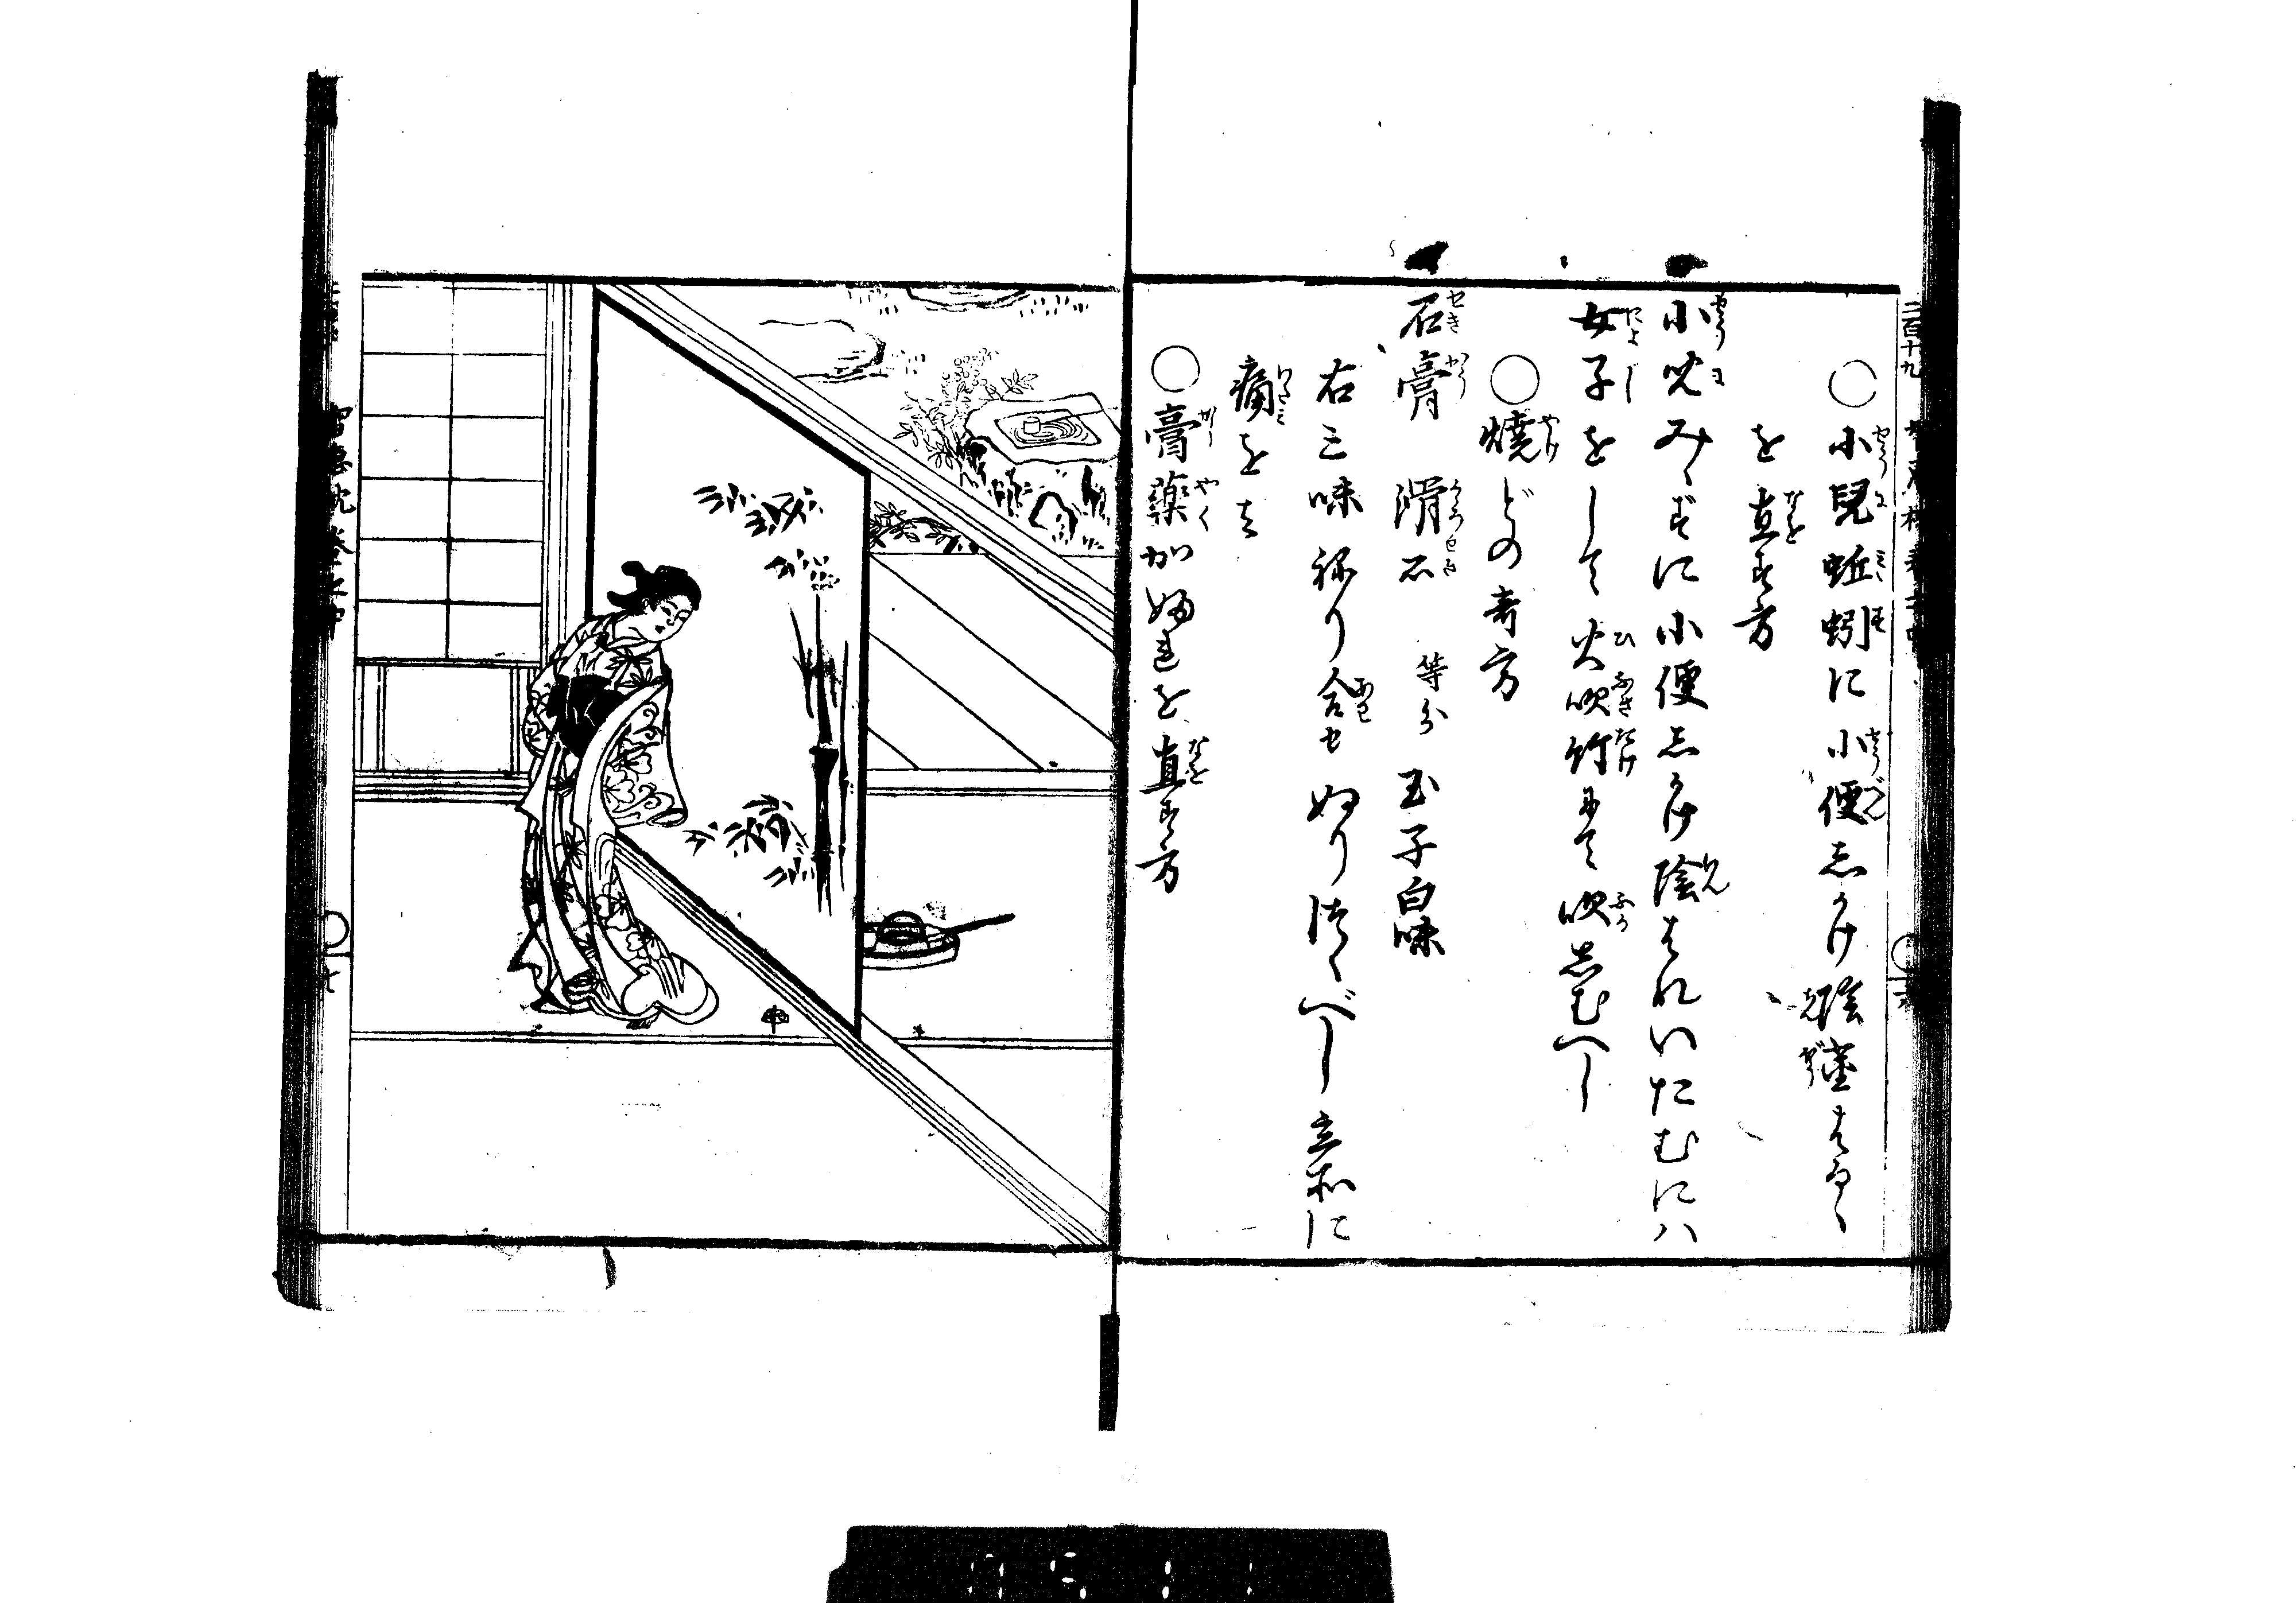 ○小児蚯蚓に小便志かけ陰莖はるゝ
を直す方
小児みゝずに小便志かけ陰はれいたむにハ
女子をして火吹竹にて吹志むへし
○焼どの奇方
石膏 滑石 等分 玉子白味
右三味ねり合セぬり付くべし立所に
痛をさ
○膏薬かぶれを直す方
二百十九